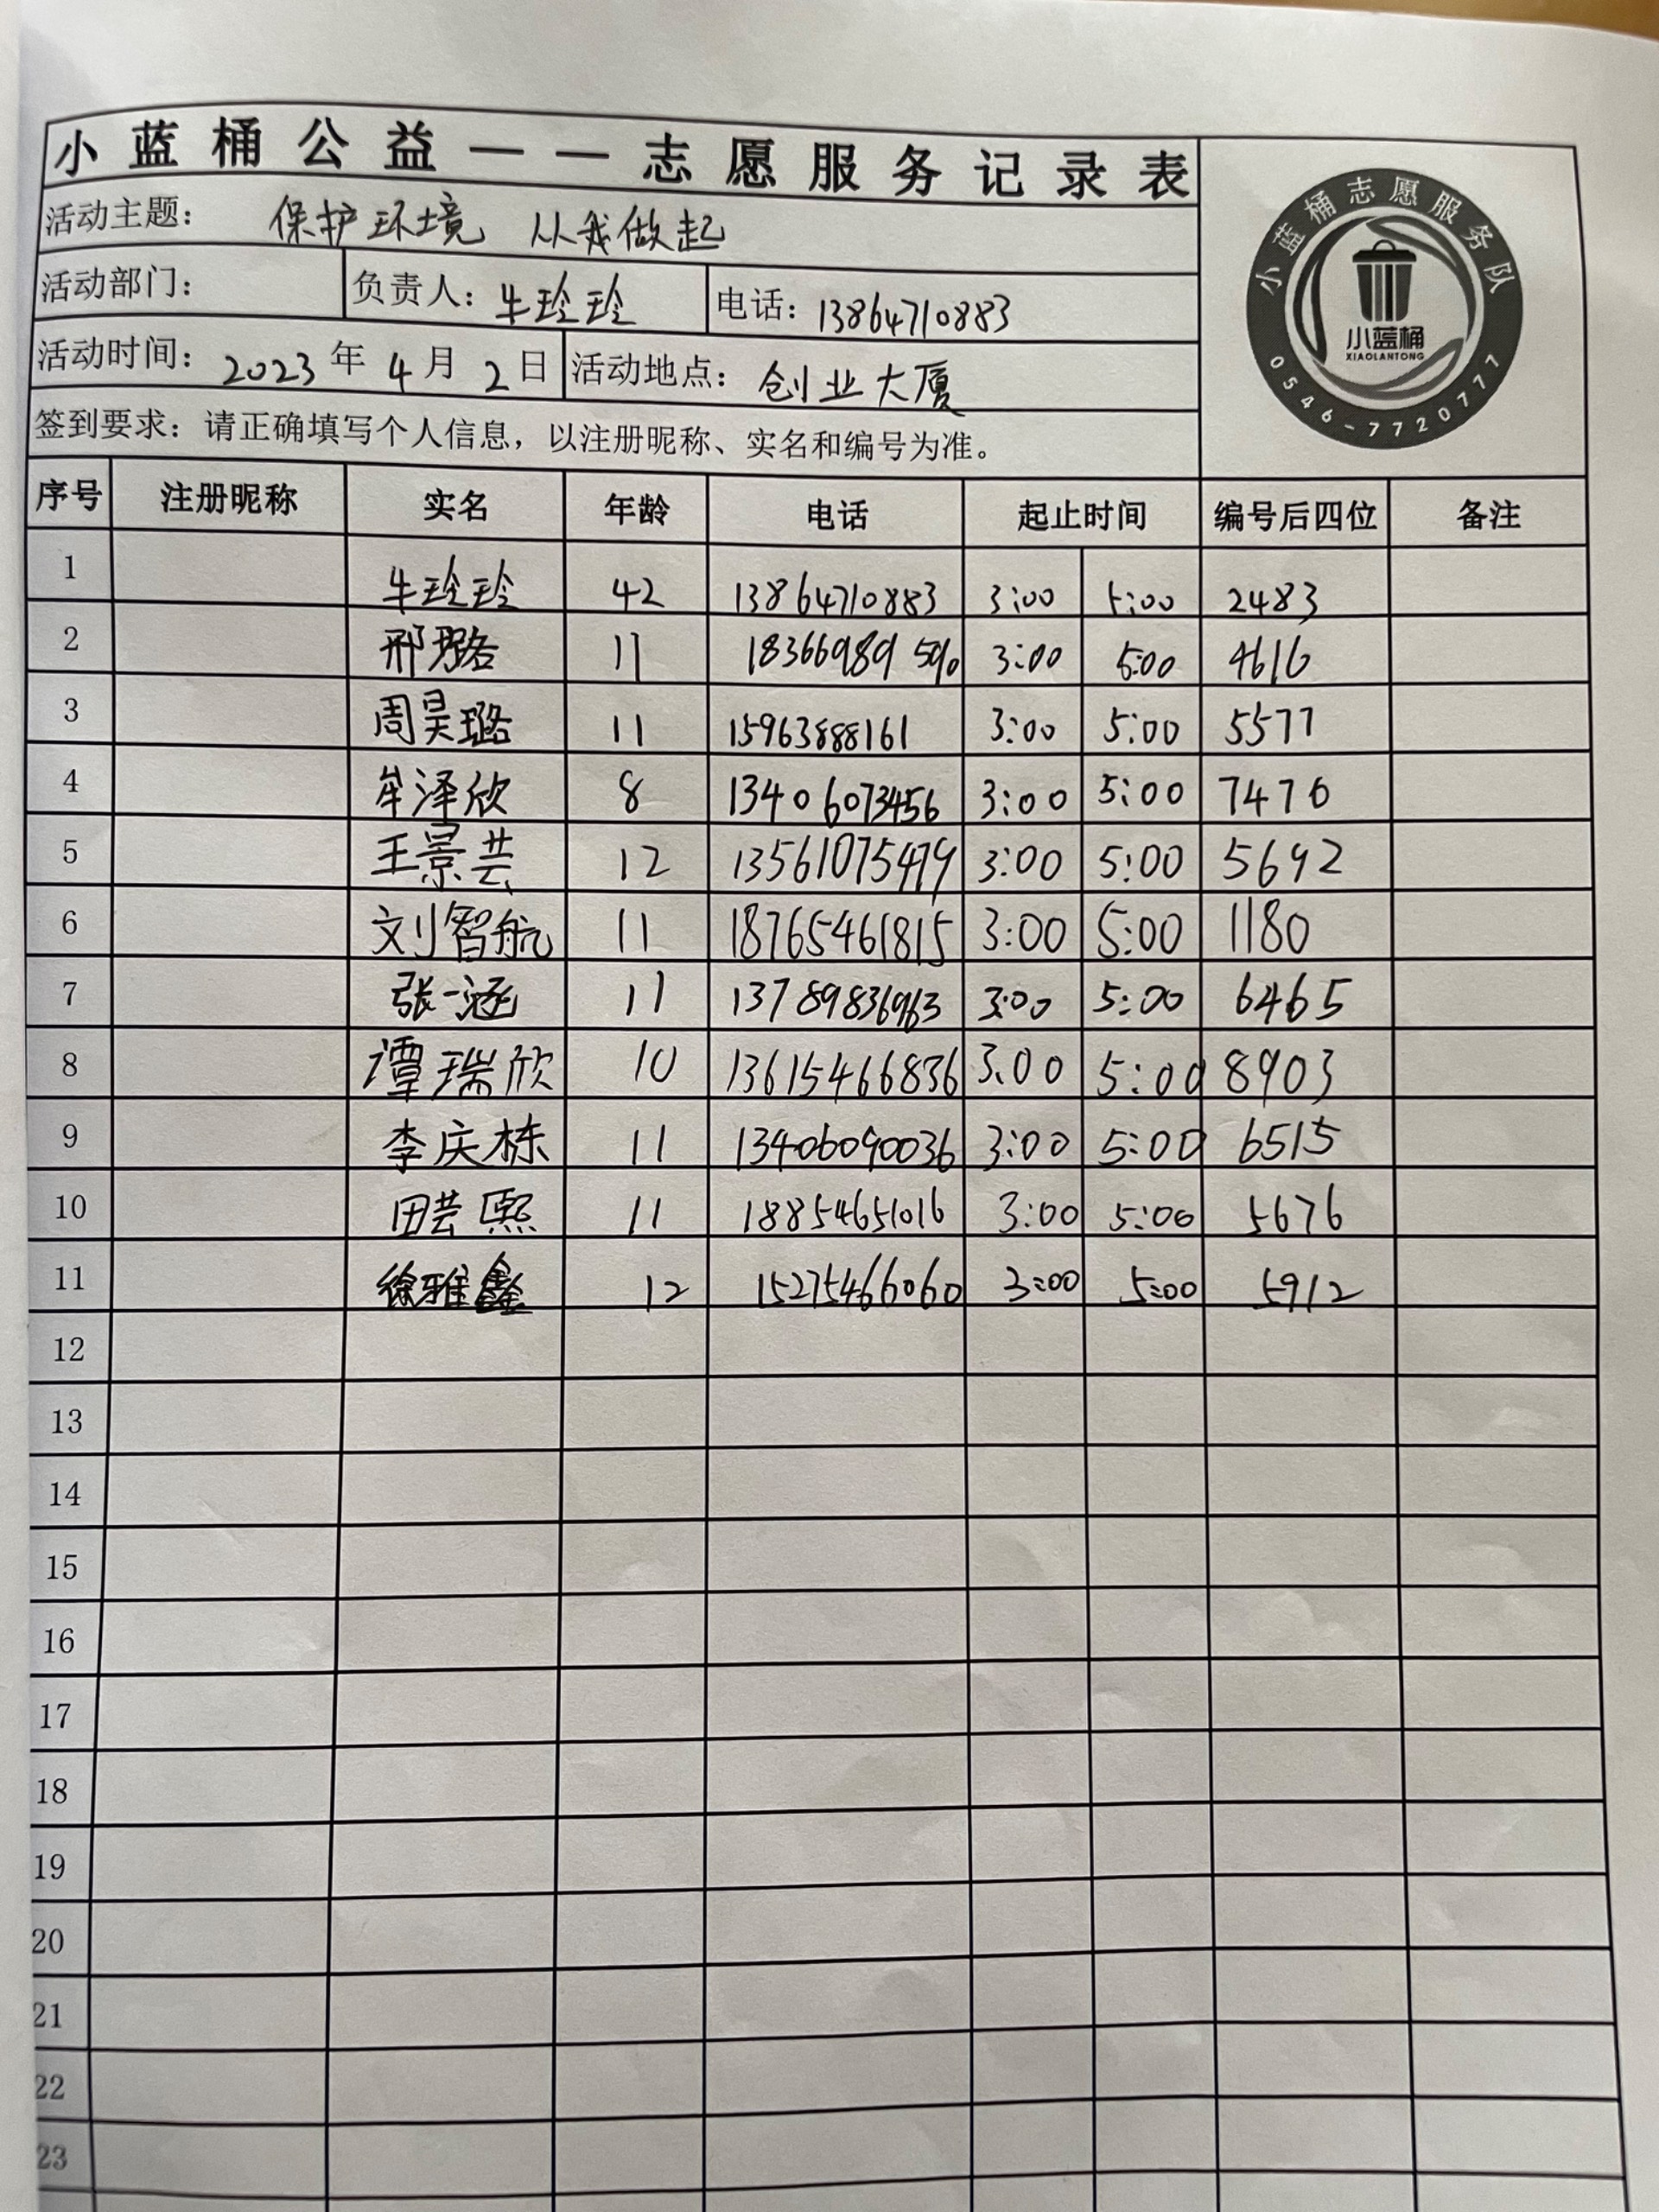 小蓝桶公益——志愿服务记录表
活动主题： 保护环境 从我做起
活动部门： 负责人：牛玲玲 电话：13864710883
活动时间：2023年4月2日 活动地点：创业大厦
签到要求：请正确填写个人信息，以注册昵称、实名和编号为准。
小蓝桶志愿服务队
小蓝桶
XIAOLANTONG
0546-7720777
序号 注册昵称 实名 年龄 电话 起止时间 编号后四位 备注
1 牛玲玲 42 13864710883 3:00 5:00 2483
2 邢璐 11 18366989590 3:00 5:00 4616
3 周昊璐 11 15963888161 3:00 5:00 5577
4 牟泽欣 8 13406073456 3:00 5:00 7476
5 王景芸 12 13561075479 3:00 5:00 5692
6 刘智航 11 18765461815 3:00 5:00 1180
7 张一涵 11 13789836963 3:00 5:00 6465
8 谭瑞欣 10 13615466836 3.00 5:00 8903
9 李庆栋 11 13406090036 3:00 5:00 6515
10 田芸熙 11 18854651016 3:00 5:00 5676
11 徐雅鑫 12 15275466060 3:00 5:00 5912
12
13
14
15
16
17
18
19
20
21
22
23